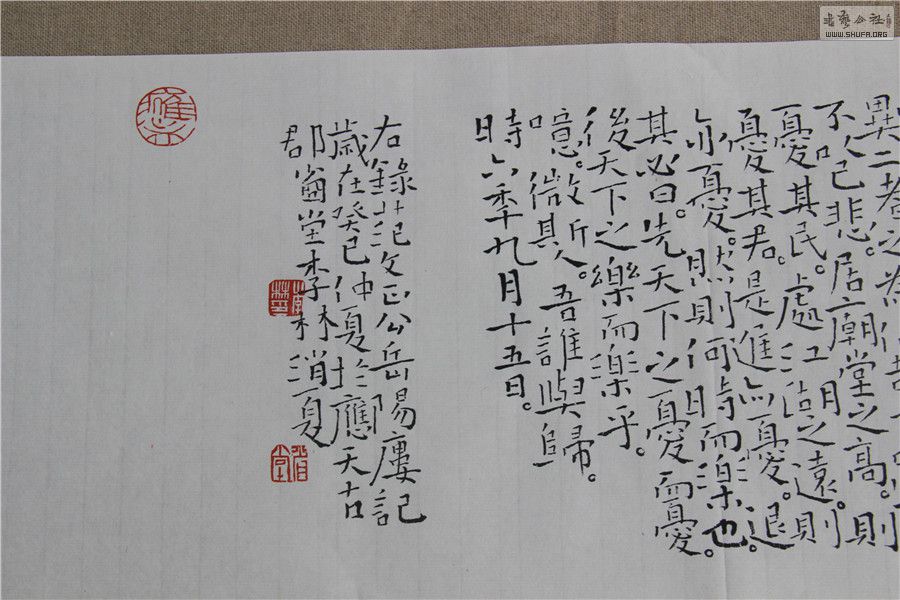 異二者之為
不以己悲。居廟堂之高。則
憂其民。處江湖之遠。則
憂其君。是進亦憂。退
亦憂。然則何時而樂也。
其必曰。先天下之憂而憂。
後天下之樂而樂乎。
噫。微斯人。吾誰與歸。
時六季九月十五日。
右錄范文正公岳陽廔記
歲在癸巳仲夏於應天古
郡 堂李林消夏
WWW.SHUFA.ORG